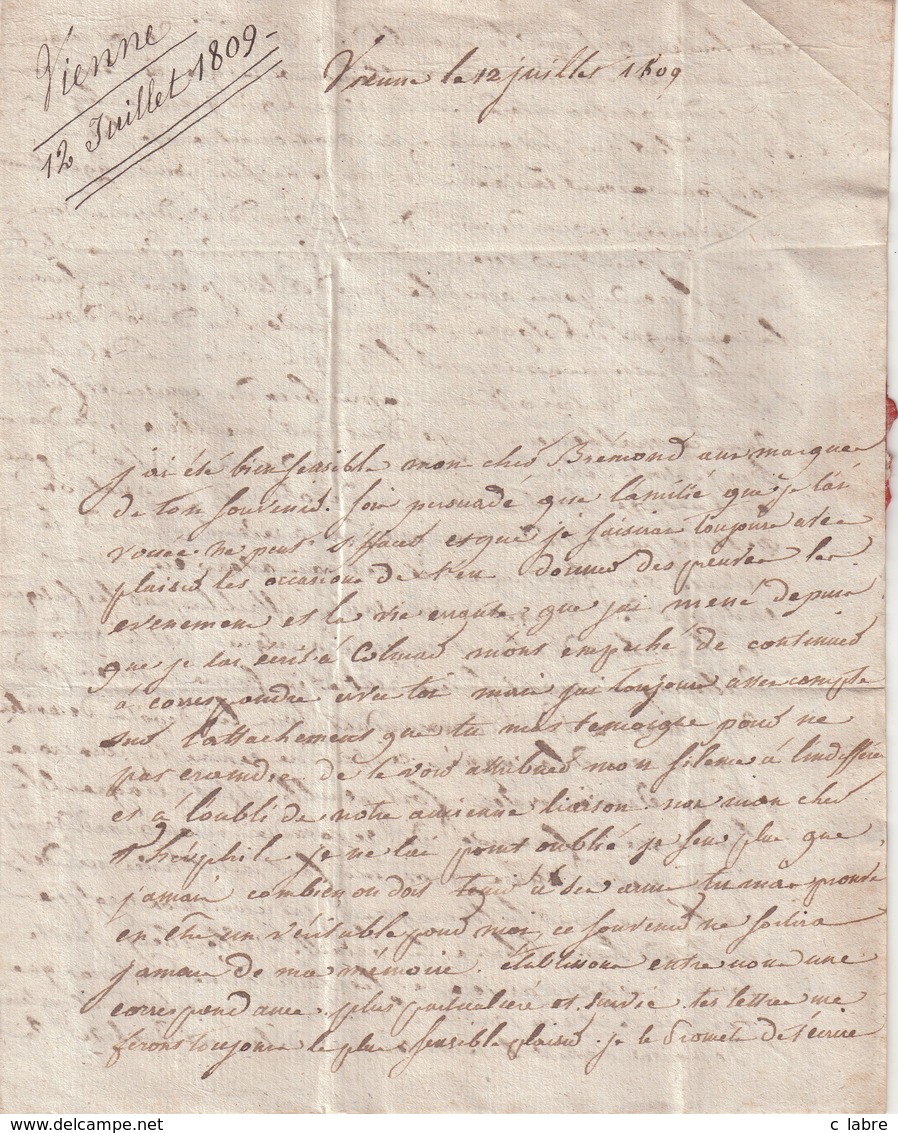 Vienne
12 Juillet 1809 -
Vienne le 12 juillet 1809
j'ai été bien sensible mon cher Brémond aux marques
de ton souvenir. sois persuadé que l'amitié que je t'ai
vouée ne peut s'effacer et que je saisirai toujours avec
plaisir les occasions de t'en donner des preuves les
evenemens et la vie errante que j'ai mené depuis
que je t'ai écrit à Colmar m'ont empeché de continuer
à correspondre avec toi mais j'ai toujours assez compté
sur l'attachement que tu m'as temoigné pour ne
pas craindre de te voir attribuer mon silence à l'indifférence
et à l'oubli de notre ancienne liaison non mon cher
Théophile je ne t'ai point oublié je sens plus que
jamais combien on doit tenir à ses amis tu m'as prouvé
en être un véritable pour moi, ce souvenir ne sortira
jamais de ma mémoire. établissons entre nous une
correspondance plus particulière et suivie tes lettres me
feront toujours le plus sensible plaisir. je te promets de t'écrire
c labre